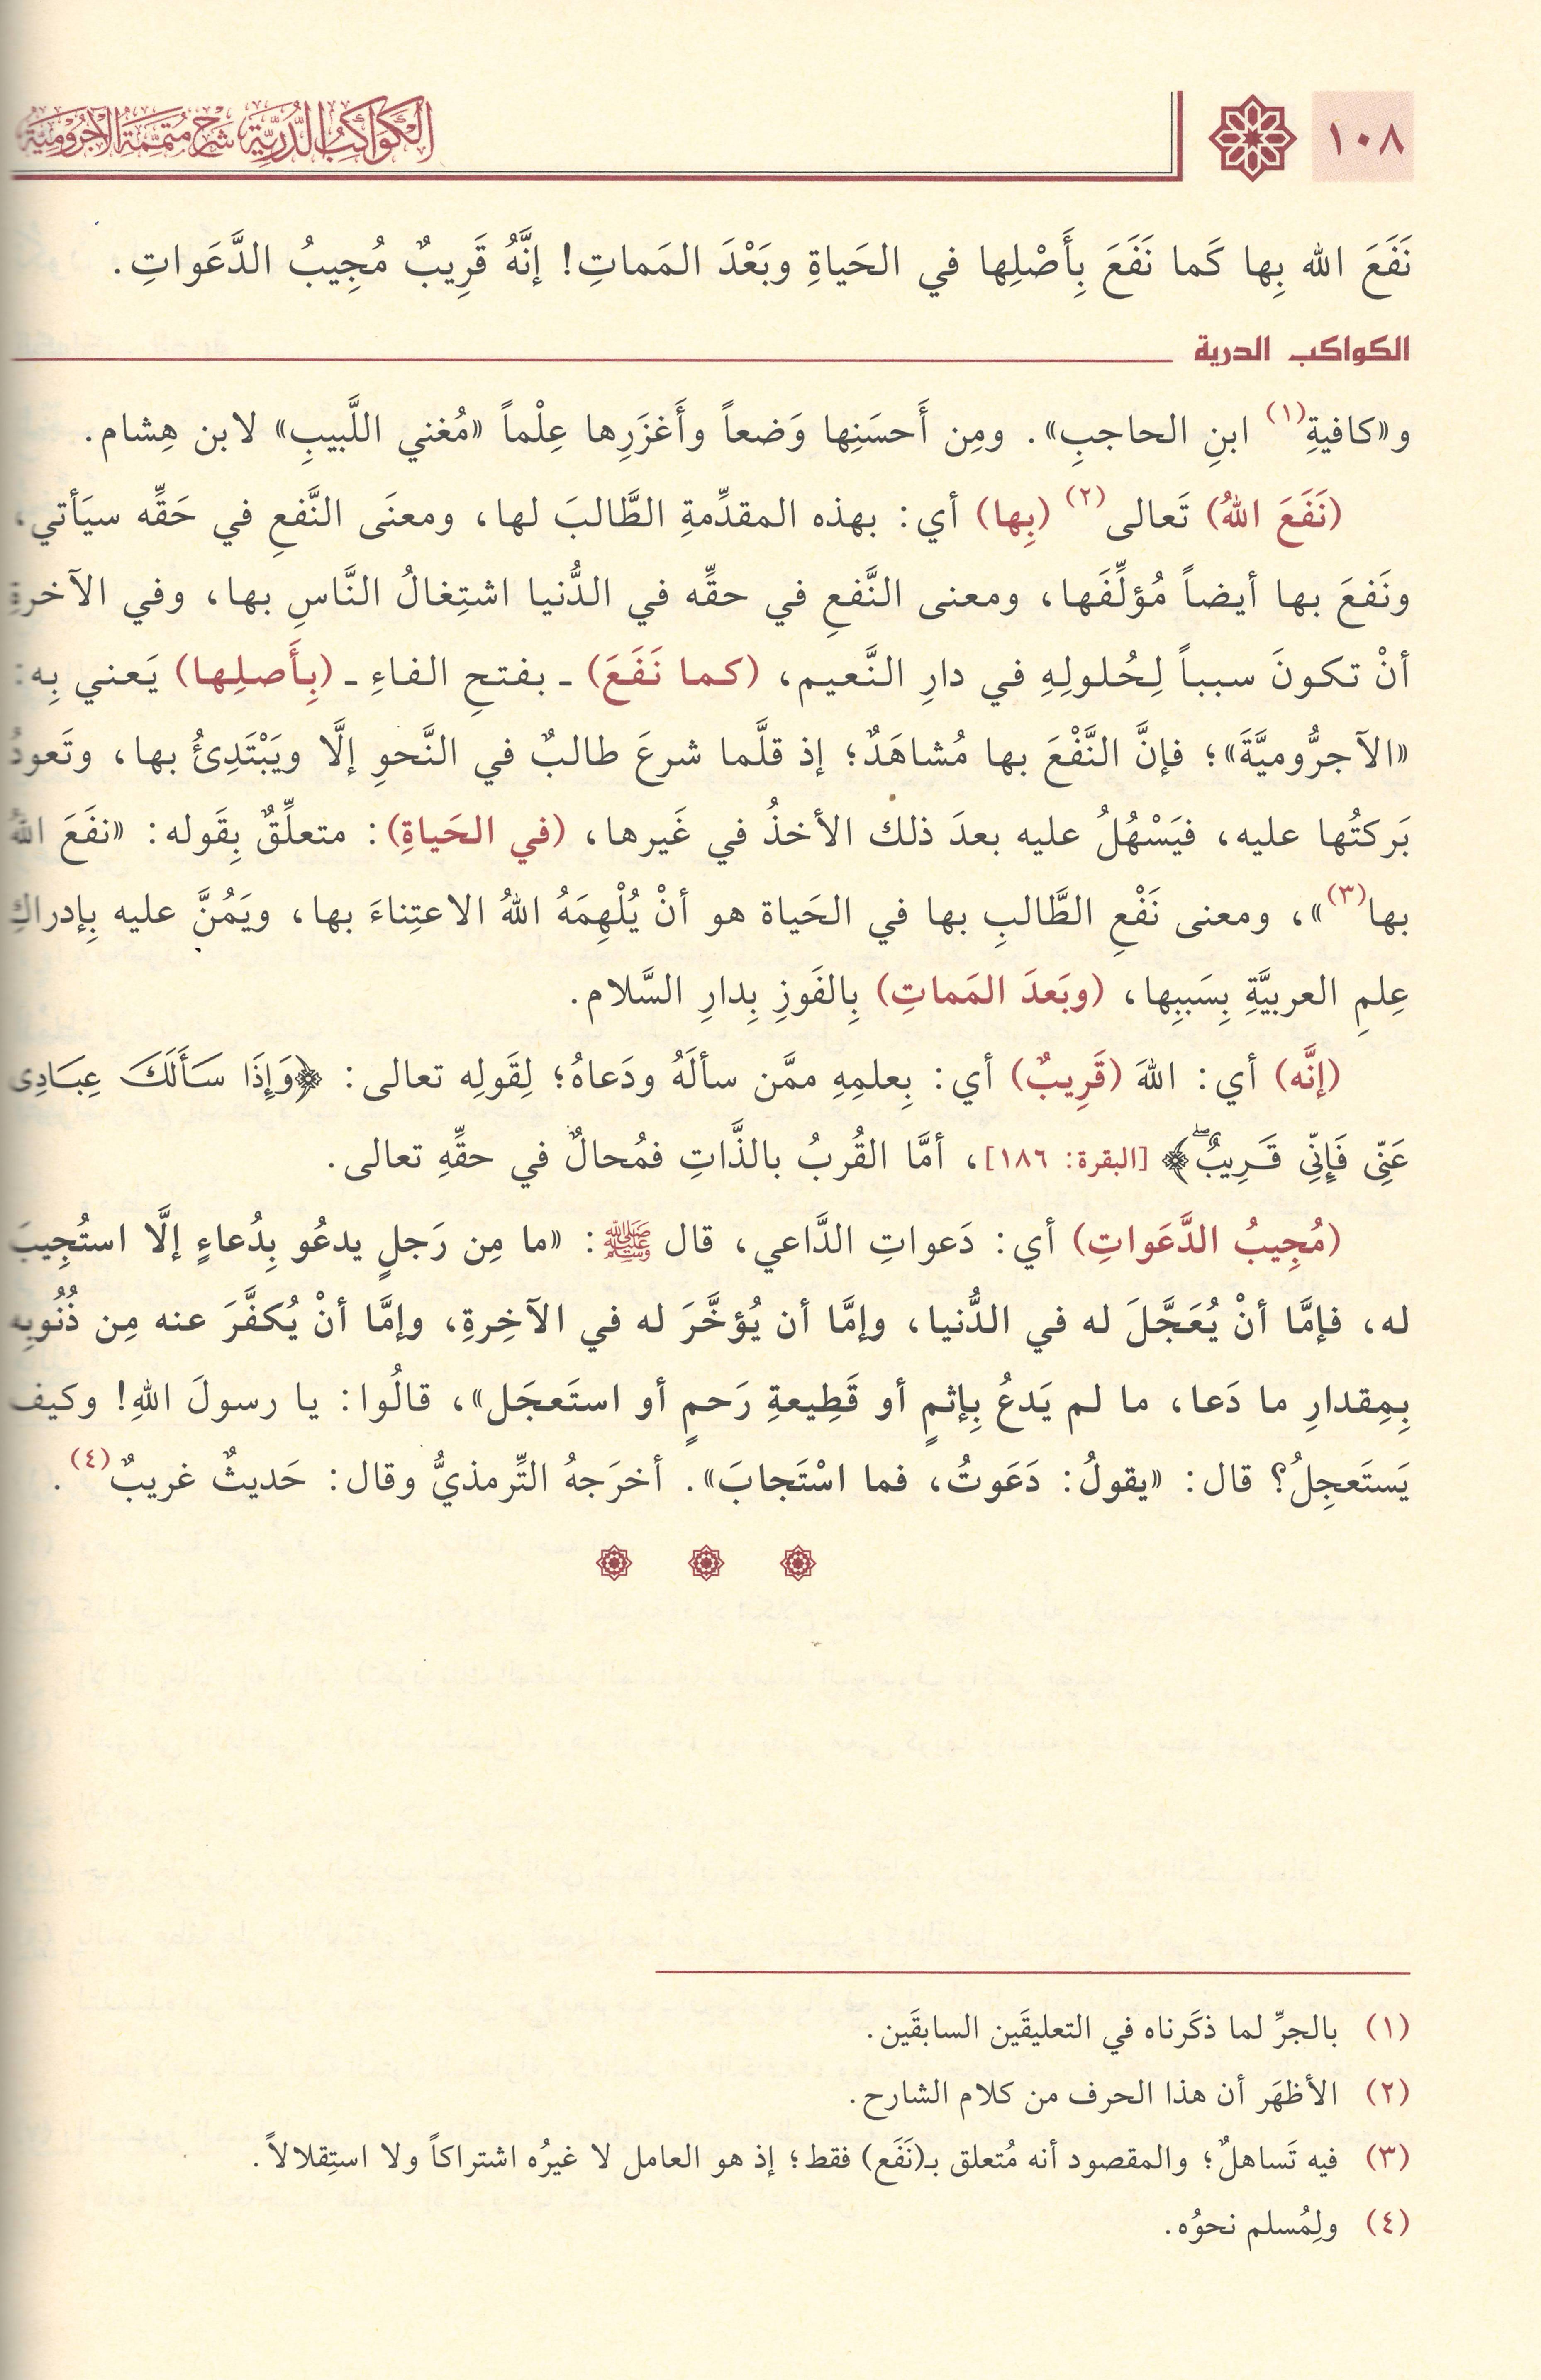 ١٠٨
الكواكب الدرية شرح متممة الآجرومية
نَفَعَ الله بِها كَما نَفَعَ بِأَصْلِها في الحَياةِ وبَعْدَ المَماتِ! إنَّهُ قَرِيبٌ مُجِيبُ الدَّعَواتِ.
الكواكب الدرية
و«كافيةِ(١) ابنِ الحاجبِ». ومِن أَحسَنِها وَضعاً وأَغزَرِها عِلْماً «مُغني اللَّبيبِ» لابن هِشام.
(نَفَعَ اللهُ) تَعالى(٢) (بِها) أي: بهذه المقدِّمةِ الطَّالبَ لها، ومعنَى النَّفعِ في حَقِّه سيَأتي،
ونَفعَ بها أيضاً مُؤلِّفَها، ومعنى النَّفعِ في حقِّه في الدُّنيا اشتِغالُ النَّاسِ بها، وفي الآخرةِ
أنْ تكونَ سبباً لِحُلولِهِ في دارِ النَّعيم، (كما نَفَعَ) ـ بفتحِ الفاءِ ـ (بِأَصلِها) يَعني بِه:
«الآجرُّوميَّةَ»؛ فإنَّ النَّفْعَ بها مُشاهَدٌ؛ إذ قلَّما شرعَ طالبٌ في النَّحوِ إلَّا ويَبْتَدِئُ بها، وتَعودُ
بَركتُها عليه، فيَسْهُلُ عليه بعدَ ذلك الأخذُ في غَيرها، (في الحَياةِ): متعلِّقٌ بِقَوله: «نفَعَ اللهُ
بها(٣)»، ومعنى نَفْعِ الطَّالبِ بها في الحَياة هو أنْ يُلْهِمَهُ اللهُ الاعتِناءَ بها، ويَمُنَّ عليه بِإدراكِ
عِلمِ العربيَّةِ بِسَببِها، (وبَعدَ المَماتِ) بِالفَوزِ بِدارِ السَّلام.
(إنَّه) أي: اللهَ (قَرِيبٌ) أي: بِعلمِهِ ممَّن سألَهُ ودَعاهُ؛ لِقَولِه تعالى: ﴿وَإِذَا سَأَلَكَ عِبَادِى
عَنِّى فَإِنِّى قَرِيبٌۖ﴾ [البقرة: ١٨٦]، أمَّا القُربُ بالذَّاتِ فمُحالٌ في حقِّهِ تعالى.
(مُجِيبُ الدَّعَواتِ) أي: دَعواتِ الدَّاعي، قال ﷺ: «ما مِن رَجلٍ يدعُو بِدُعاءٍ إلَّا استُجِيبَ
له، فإمَّا أنْ يُعَجَّلَ له في الدُّنيا، وإمَّا أن يُؤخَّرَ له في الآخِرةِ، وإمَّا أنْ يُكفَّرَ عنه مِن ذُنُوبِه
بِمِقدارِ ما دَعا، ما لم يَدعُ بِإثمٍ أو قَطِيعةِ رَحمٍ أو استَعجَل»، قالُوا: يا رسولَ اللهِ! وكيف
يَستَعجِلُ؟ قال: «يقولُ: دَعَوتُ، فما اسْتَجابَ». أخرَجهُ التِّرمذيُّ وقال: حَديثٌ غريبٌ(٤).
(١) بالجرِّ لما ذكَرناه في التعليقَين السابقَين.
(٢) الأظهَر أن هذا الحرف من كلام الشارح.
(٣) فيه تَساهلٌ؛ والمقصود أنه مُتعلق بـ(نَفَع) فقط؛ إذ هو العامل لا غيرُه اشتراكاً ولا استِقلالاً.
(٤) ولِمُسلم نحوُه.